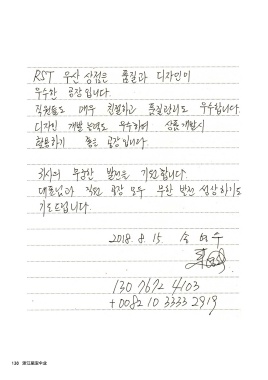 RST 우산 상점은 품질과 디자인이
우수한 공장입니다.
직원들도 매우 친절하고 품질관리도 우수합니다.
디자인 개발 능력도 우수하여 상품개발시
활용하기 좋은 공장입니다.
귀사의 무궁한 발전을 기원합니다.
대표님과 직원 공장 모두 무한 발전 성장하기도
기도드립니다.
2018. 8. 15 송
130 7672 4103
+0082 10 3333 2919
138 浙江星宝伞业